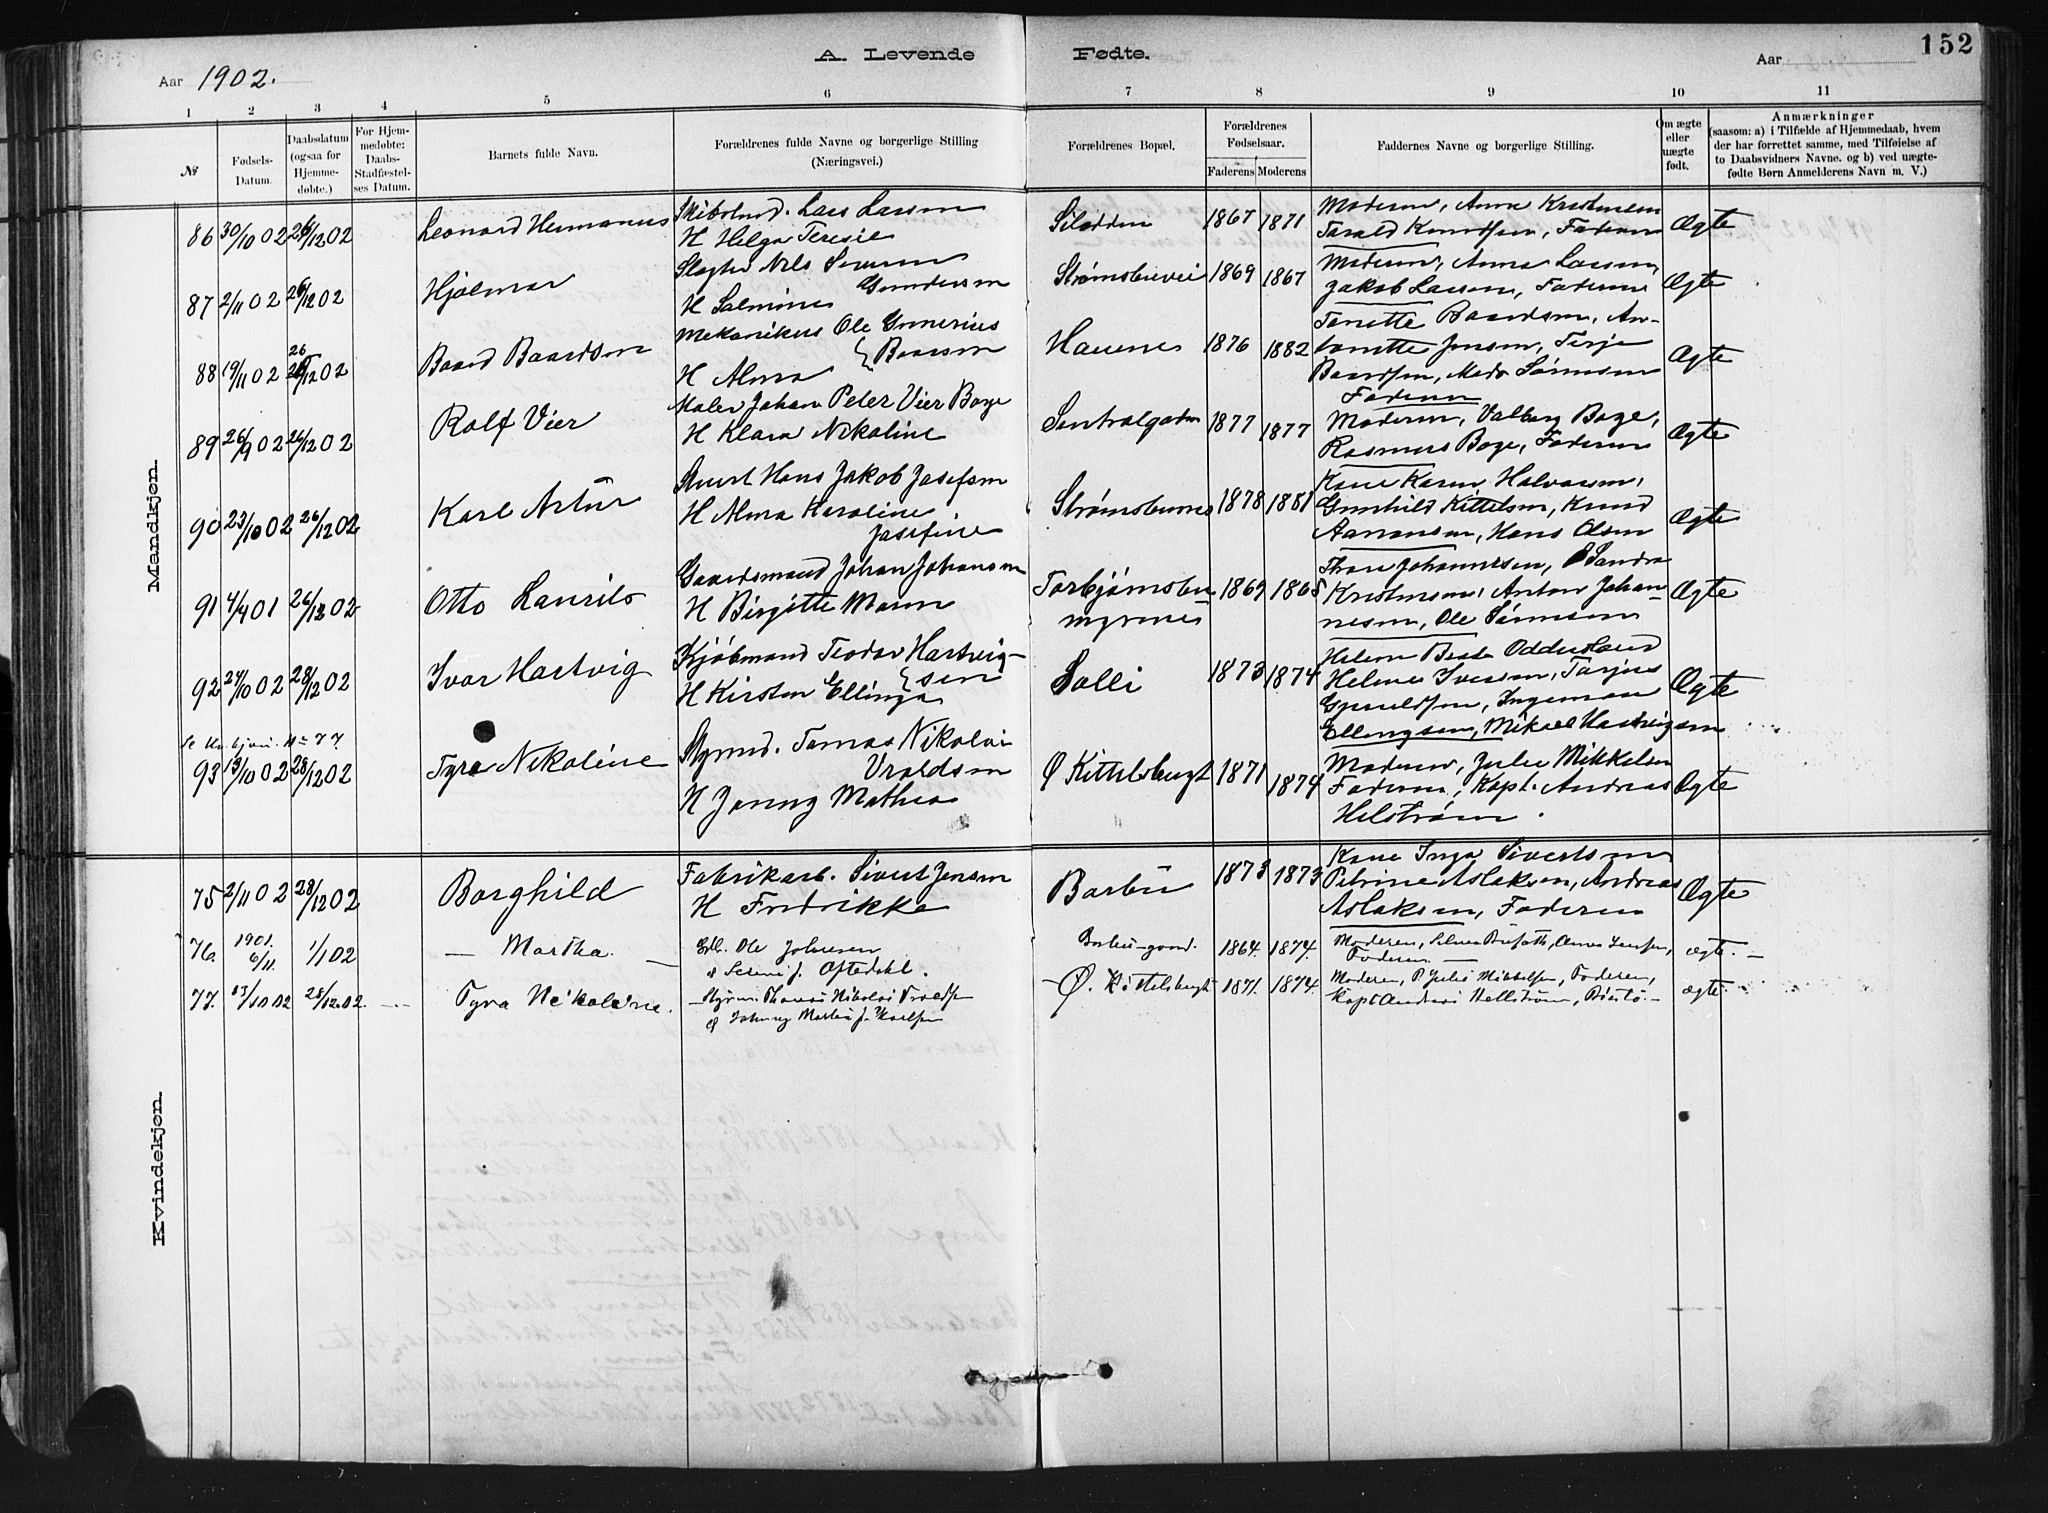 152
A. Levende Fødte.
Aar 1902.
Aar
1 2 3 4 5 6 7 8 9 10 11
№
Fødsels-Datum.
Daabsdatum (ogsaa for Hjemmedøbte.)
For Hjemmedøbte: Daabs-Stadfæstelses Datum.
Barnets fulde Navn.
Forældrenes fulde Navne og borgerlige Stilling (Næringsvei.)
Forældrenes Bopæl.
Forældrenes Fødselsaar.
Faderens Moderens
Faddernes Navne og borgerlige Stilling.
Om ægte eller uægte født.
Anmærkninger
(saasom: a) i Tilfælde af Hjemmedaab, hvem
der har forrettet samme, med Tilføielse af
to Daabsvidners Navne. og b) ved uægte-
fødte Børn Anmelderens Navn m. V.)
Mandkjøn.
86 30/10 02 26/12 02 Leonard Hermanus
Lars Larsen
H Helga Teresie
1867 1871
Moderen, Anna Kristensen
Tarald Knudsen, Faderen
Ægte
87 2/11 02 26/12 02 Hjalmar
Slagter Nils Severin
Gundersen
H Salmine
Strømsbuvei 1869 1867
Moderen, Anna Larsen,
Jakob Larsen, Faderen
Ægte
88 19/11 02 26/12 02 Baard Baardsen
Mekanikus Ole Gunerius
Baarsen
H Alma
Havene 1876 1882
Tanette Baardsen, An-
Jensen, Terje
Baardsen, Mads Sørensen
Faderen
Ægte
89 26/9 02 26/12 02 Rolf Vier
Maler Johan Peter Vier Boge
H Klara Nikoline
Sentralgaten 1877 1877
Moderen, Valborg Boge,
Rasmus Boge, Faderen
Ægte
90 23/10 02 26/12 02 Karl Artur
Hans Jakob Josefsen
H Alma Karoline
Josefine
Strømsbunes 1878 1881
Kone Karen Halvorsen,
Gunhild Kittelsen, Knud
Aanonsen, Hans Olsen
Ægte
91 4/9 01 26/12 02 Otto Laurits
Gaardsmand Johan Johansen
H Birgitte Maren
Torbjørnsbu
myrene
1869 1865
Thora Johannesen, Sandra
Kristensen, Anton Johan-
nesen, Ole Sørensen
Ægte
92 24/10 02 28/12 02 Ivar Hartvig
Kjøbmand Teodor Hartvig-
sen
H Kirsten Ellinga
Solli 1873 1874
Helene Beate Oddersland
Helene Iversen, Tarjus
Ingeman
Ellingsen, Mikael Hartvigsen
Ægte
Se Kv.kjøn. No 77.
93 13/10 02 28/12 02 Tyra Nikoline
Styrmd. Tomas Nikolai
Vraldsen
H Jenny Mathea
Ø Kittelsbugt 1871 1874
Moderen, Julie Mikkelsen
Faderen, Kapt. Andreas
Helstrøm.
Ægte
Kvindekjøn.
75 2/11 02 28/12 02 Borghild
Fabrikarb. Sivert Jensen
H Fredrikke
Barbu 1873 1873
Kone Inga Sivertsen
Petrine Aslaksen, Andreas
Aslaksen, Faderen
Ægte
76. 1901. 6/11. 1/1 02 — Martha. —
Ole Johnsen
Oftedahl.
Barbu-gaard. 1864. 1874.
Moderen,
Faderen. —
ægte. —
77. 13/10 02 28/12. 02. Tyra Nikoline.
Styrm. Thomas Nikolai Vraldsen
& Jenny Mathea f. Karlsen
Ø. Kittelsbugt 1871. 1874.
Moderen, P. Julie Mikkelsen, Faderen,
Kapt. Andreas Hellstrøm,
ægte.